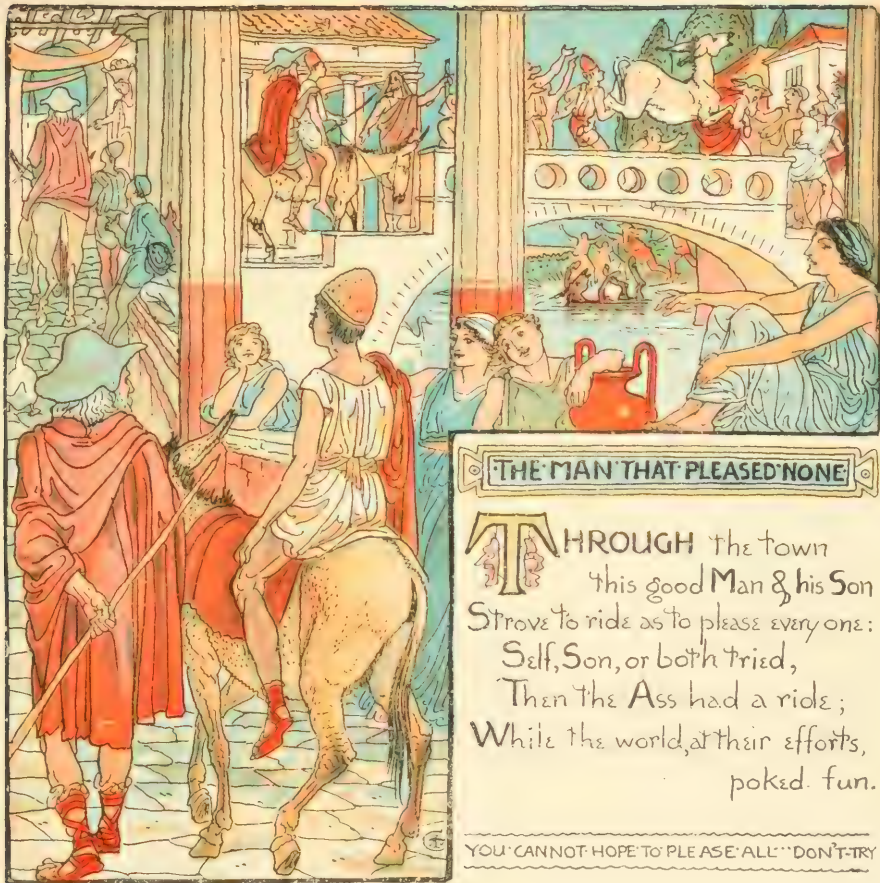 ·THE·MAN·THAT·PLEASED·NONE·
THROUGH the town
this good Man & his Son
Strove to ride as to please every one:
Self, Son, or both tried,
Then the Ass had a ride;
While the world, at their efforts,
poked fun.
YOU·CANNOT·HOPE·TO·PLEASE·ALL···DON'T·TRY